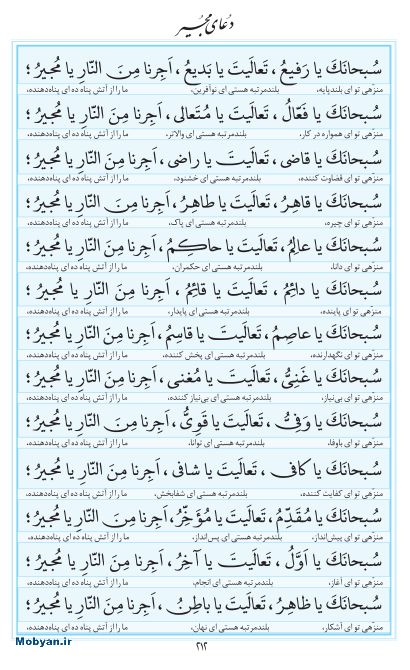 دُعای مجیر
سُبحانَكَ یا رَفیعُ، تَعالَیتَ یا بَدیعُ، اَجِرنا مِنَ النّارِ یا مُجیرُ؛
منزّهی تو ای بلندپایه، بلندمرتبه هستی ای نوآفرین، ما را از آتش پناه ده ای پناه‌دهنده،
سُبحانَكَ یا فَعّالُ، تَعالَیتَ یا مُتَعالی، اَجِرنا مِنَ النّارِ یا مُجیرُ؛
منزّهی تو ای همواره در کار، بلندمرتبه هستی ای والاتر، ما را از آتش پناه ده ای پناه‌دهنده،
سُبحانَكَ یا قاضی، تَعالَیتَ یا راضی، اَجِرنا مِنَ النّارِ یا مُجیرُ؛
منزّهی تو ای قضاوت کننده، بلندمرتبه هستی ای خشنود، ما را از آتش پناه ده ای پناه‌دهنده،
سُبحانَكَ یا قاهِرُ، تَعالَیتَ یا طاهِرُ، اَجِرنا مِنَ النّارِ یا مُجیرُ؛
منزّهی تو ای چیره، بلندمرتبه هستی ای پاک، ما را از آتش پناه ده ای پناه‌دهنده،
سُبحانَكَ یا عالِمُ، تَعالَیتَ یا حاکِمُ، اَجِرنا مِنَ النّارِ یا مُجیرُ؛
منزّهی تو ای دانا، بلندمرتبه هستی ای حکمران، ما را از آتش پناه ده ای پناه‌دهنده،
سُبحانَكَ یا دائِمُ، تَعالَیتَ یا قائِمُ، اَجِرنا مِنَ النّارِ یا مُجیرُ؛
منزّهی تو ای پاینده، بلندمرتبه هستی ای پایدار، ما را از آتش پناه ده ای پناه‌دهنده،
سُبحانَكَ یا عاصِمُ، تَعالَیتَ یا قاسِمُ، اَجِرنا مِنَ النّارِ یا مُجیرُ؛
منزّهی تو ای نگهدارنده، بلندمرتبه هستی ای پخش کننده، ما را از آتش پناه ده ای پناه‌دهنده،
سُبحانَكَ یا غَنِیُّ، تَعالَیتَ یا مُغنی، اَجِرنا مِنَ النّارِ یا مُجیرُ؛
منزّهی تو ای بی‌نیاز، بلندمرتبه هستی ای بی‌نیاز کننده، ما را از آتش پناه ده ای پناه‌دهنده،
سُبحانَكَ یا وَفِیُّ، تَعالَیتَ یا قَوِیُّ، اَجِرنا مِنَ النّارِ یا مُجیرُ؛
منزّهی تو ای باوفا، بلندمرتبه هستی ای توانا، ما را از آتش پناه ده ای پناه‌دهنده،
سُبحانَكَ یا کافی، تَعالَیتَ یا شافی، اَجِرنا مِنَ النّارِ یا مُجیرُ؛
منزّهی تو ای کفایت کننده، بلندمرتبه هستی ای شفابخش، ما را از آتش پناه ده ای پناه‌دهنده،
سُبحانَكَ یا مُقَدِّمُ، تَعالَیتَ یا مُؤَخِّرُ، اَجِرنا مِنَ النّارِ یا مُجیرُ؛
منزّهی تو ای پیش‌انداز، بلندمرتبه هستی ای پس‌انداز، ما را از آتش پناه ده ای پناه‌دهنده،
سُبحانَكَ یا اَوَّلُ، تَعالَیتَ یا آخِرُ، اَجِرنا مِنَ النّارِ یا مُجیرُ؛
منزّهی تو ای آغاز، بلندمرتبه هستی ای انجام، ما را از آتش پناه ده ای پناه‌دهنده،
سُبحانَكَ یا ظاهِرُ، تَعالَیتَ یا باطِنُ، اَجِرنا مِنَ النّارِ یا مُجیرُ؛
منزّهی تو ای آشکار، بلندمرتبه هستی ای نهان، ما را از آتش پناه ده ای پناه‌دهنده،
۲۱۲
Mobyan.ir